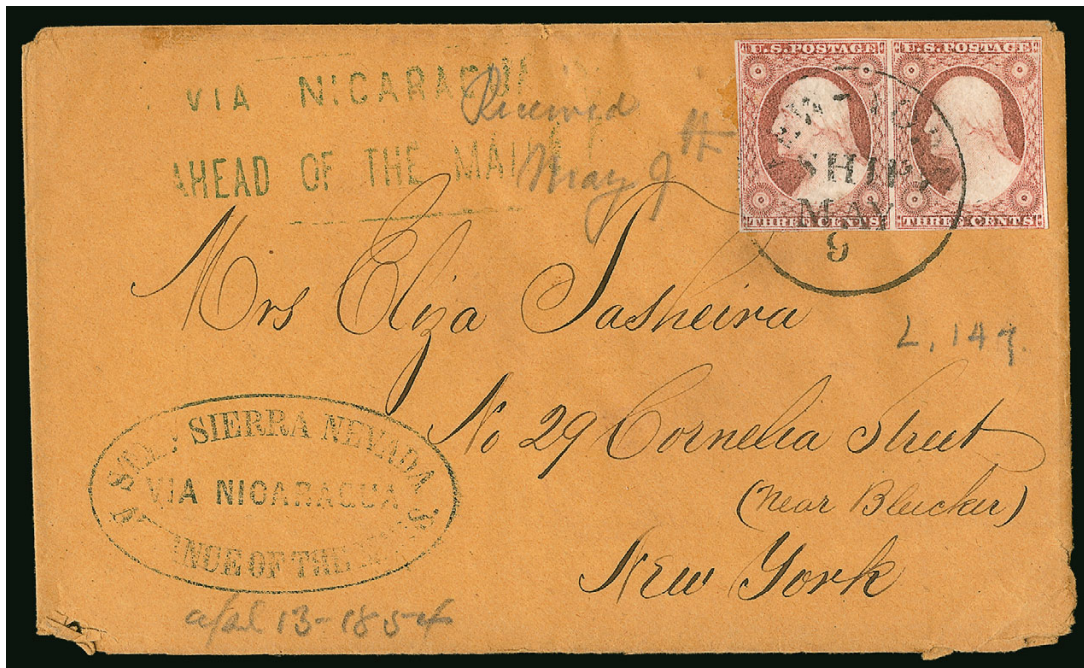 VIA NICARAGUA
AHEAD OF THE MAILS
Received
May 9th
U.S. POSTAGE U.S. POSTAGE
THREE CENTS THREE CENTS
NEW-YORK
SHIP
MAY
9
Mrs Eliza Tasheira
L. 149.
No 29 Cornelia Street
(near Bleecker)
New York
SIERRA NEVADA
VIA NICARAGUA
OF THE
13-1854